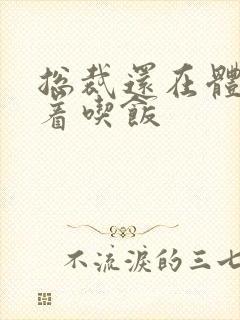 总裁還在體
着喫飯
不流淚的三七